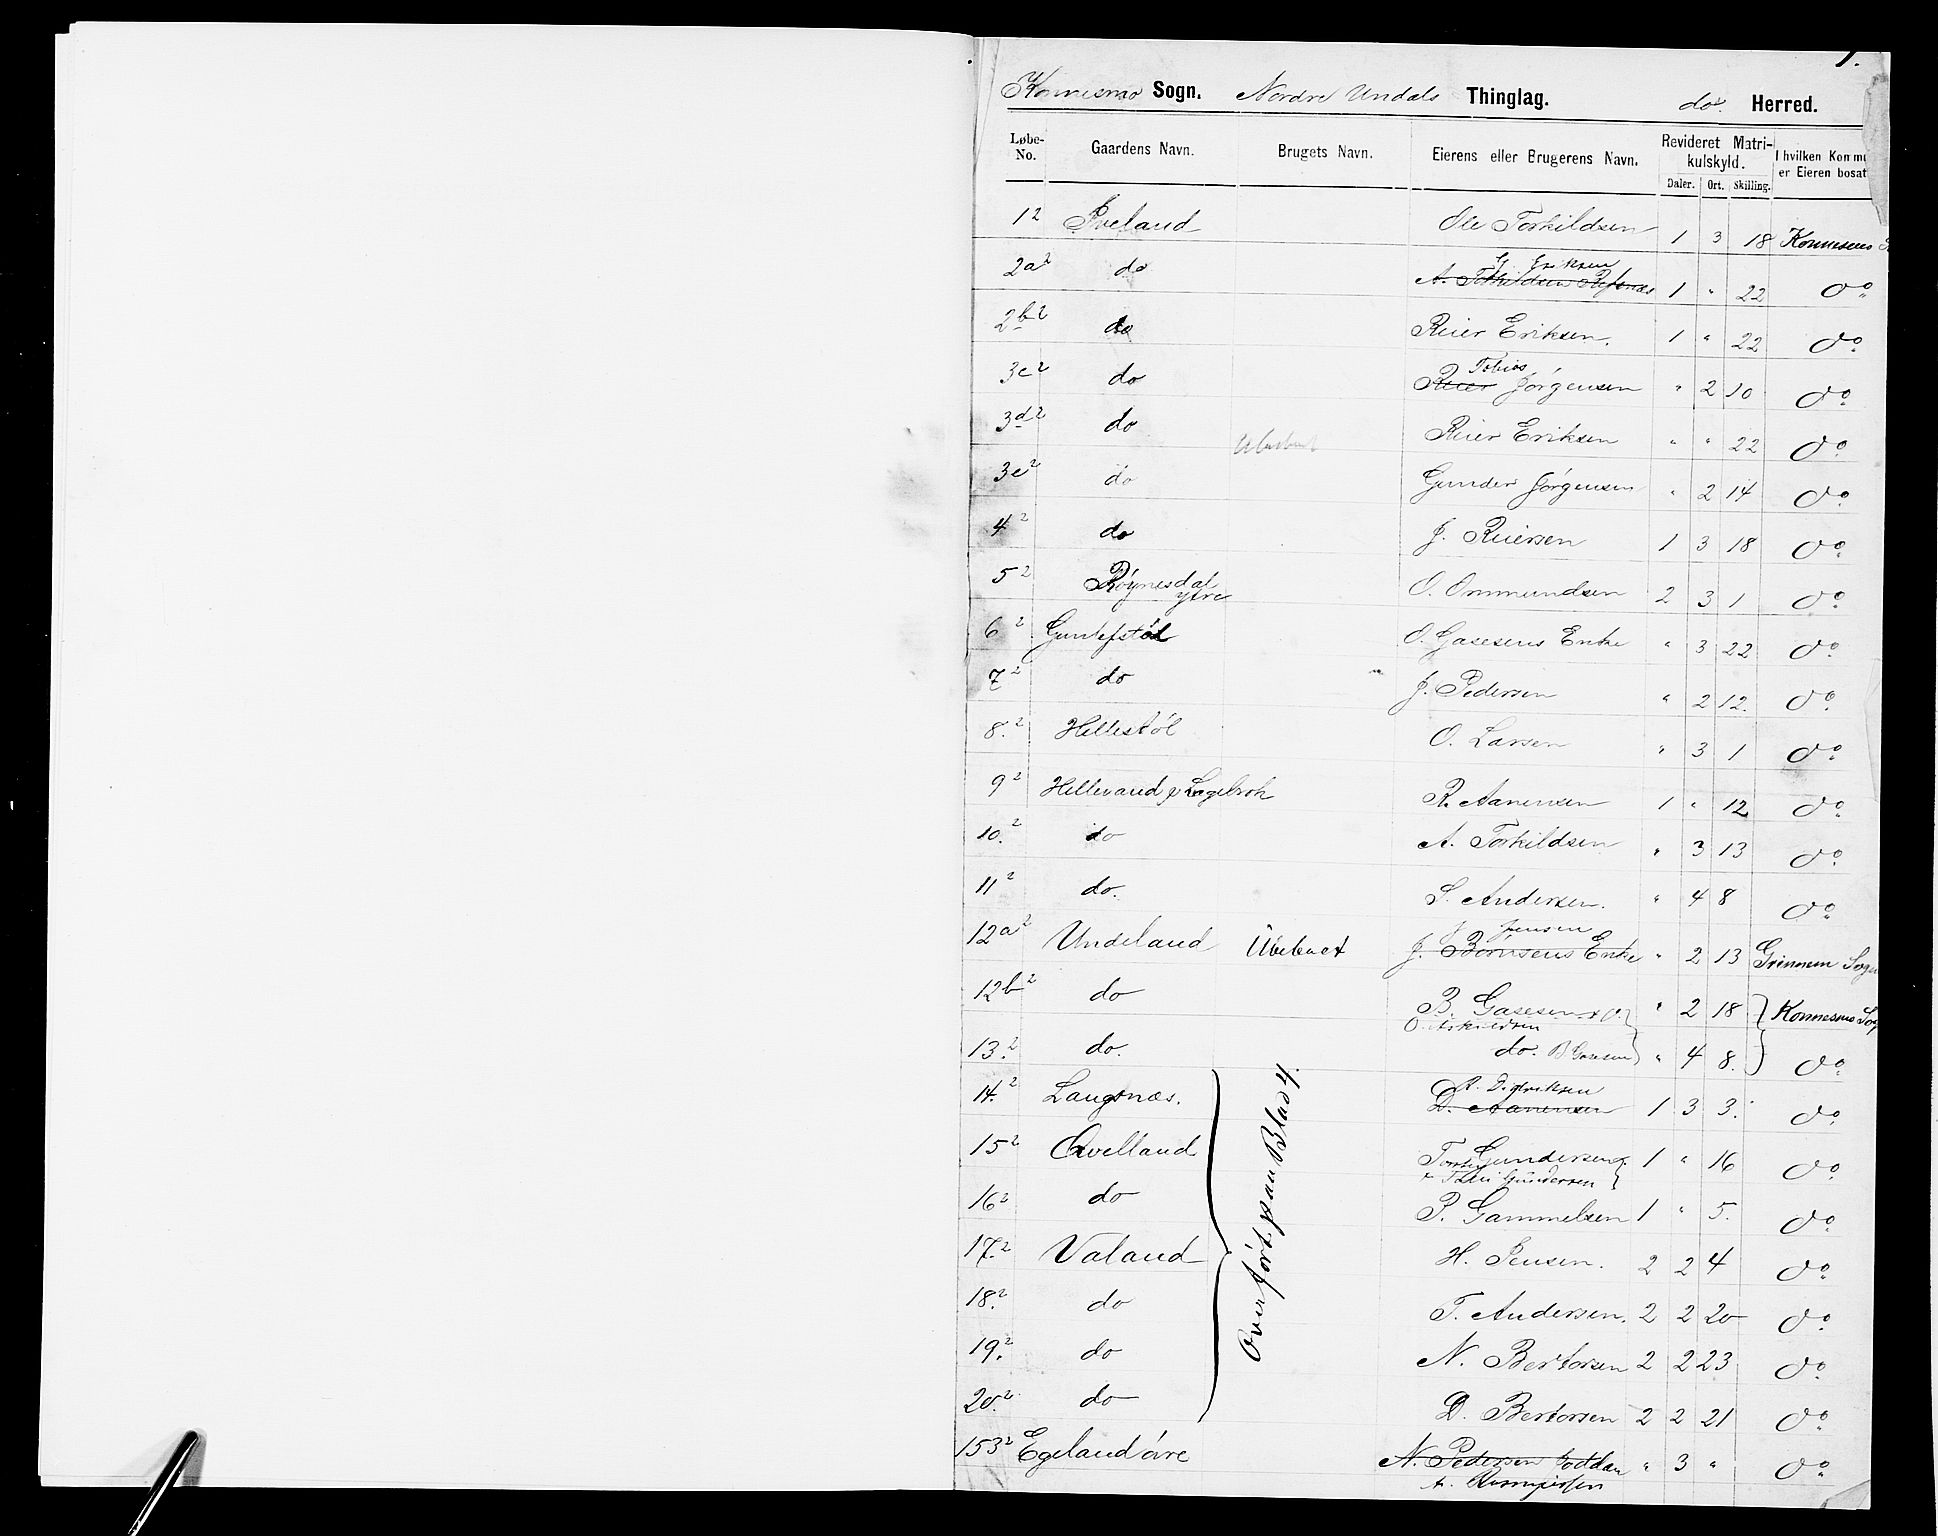 1.
Konnesmo Sogn. Nordre Undals Thinglag. do. Herred.
Løbe-No. Gaardens Navn. Brugets Navn. Eierens eller Brugerens Navn. Revideret Matrikulskyld. I hvilken Kommu er Eieren bosat
Daler. Ort. Skilling.
1² Ole Torkildsen 1 3 18 Konnesmo
2a² do A. Torkildsen Eriksen 1 " 22 do
2b² do Reier Eriksen. 1 " 22 do
3c² do Reier Tobias Jørgensen " 2 10 do
3d² do Reier Eriksen " " 22 do
3e² do Gunder Jørgensen " 2 14 do
4² do J. Reiersen 1 3 18 do
5² Røynesdal ytre O. Ommundsen 2 3 1 do
6² Gunlefstøl O. Gasesens Enke " 3 22 do
7² do J. Pedersen " 2 12. do
8.² Hellestøl O. Larsen " 3 1 do
9² Hellevand R. Aanensen 1 " 12 do
10.² do A. Torkildsen " 3 13 do
11² do. S. Andersen. " 4 8 do
12a² Undeland Ubebuet J. Jensen " 2 13 Grimnem Sogn
12b² do B. Gasesen " 2 18 Konnesmo Sog
13.² do. O. Askildsen do. B Gasesen " 4 8. do
14.² Langnæs. D. Aanensen 1 3 3. do
15² Qvelland Gundersen 1 " 16 do
16² do P. Gammelsen 1 " 5. do
17.² Valand H. Jensen. 2 2 4 do
18.² do T. Andersen. 2 2 20 do
19.² do N. Bertorsen 2 2 23 do
20.² do D. Bertorsen 2 2 21 do
Overført paa Blad 4.
153² Egeland øvre N. Pedersen " 3 " do